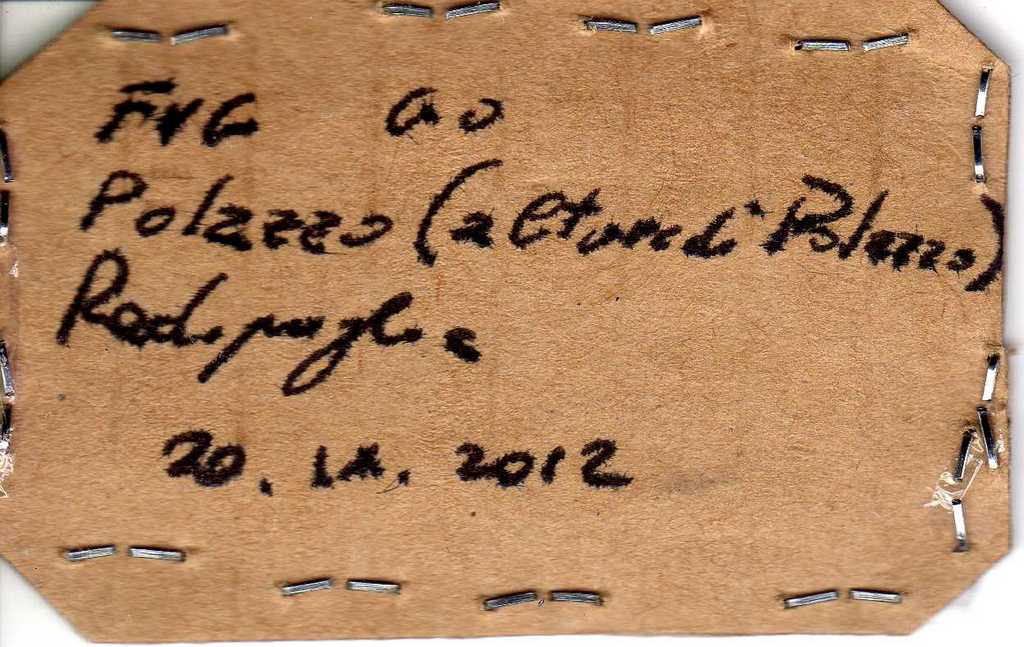 FVG GO
Polazzo (alture di Polazzo)
Redipuglia
20. IX. 2012